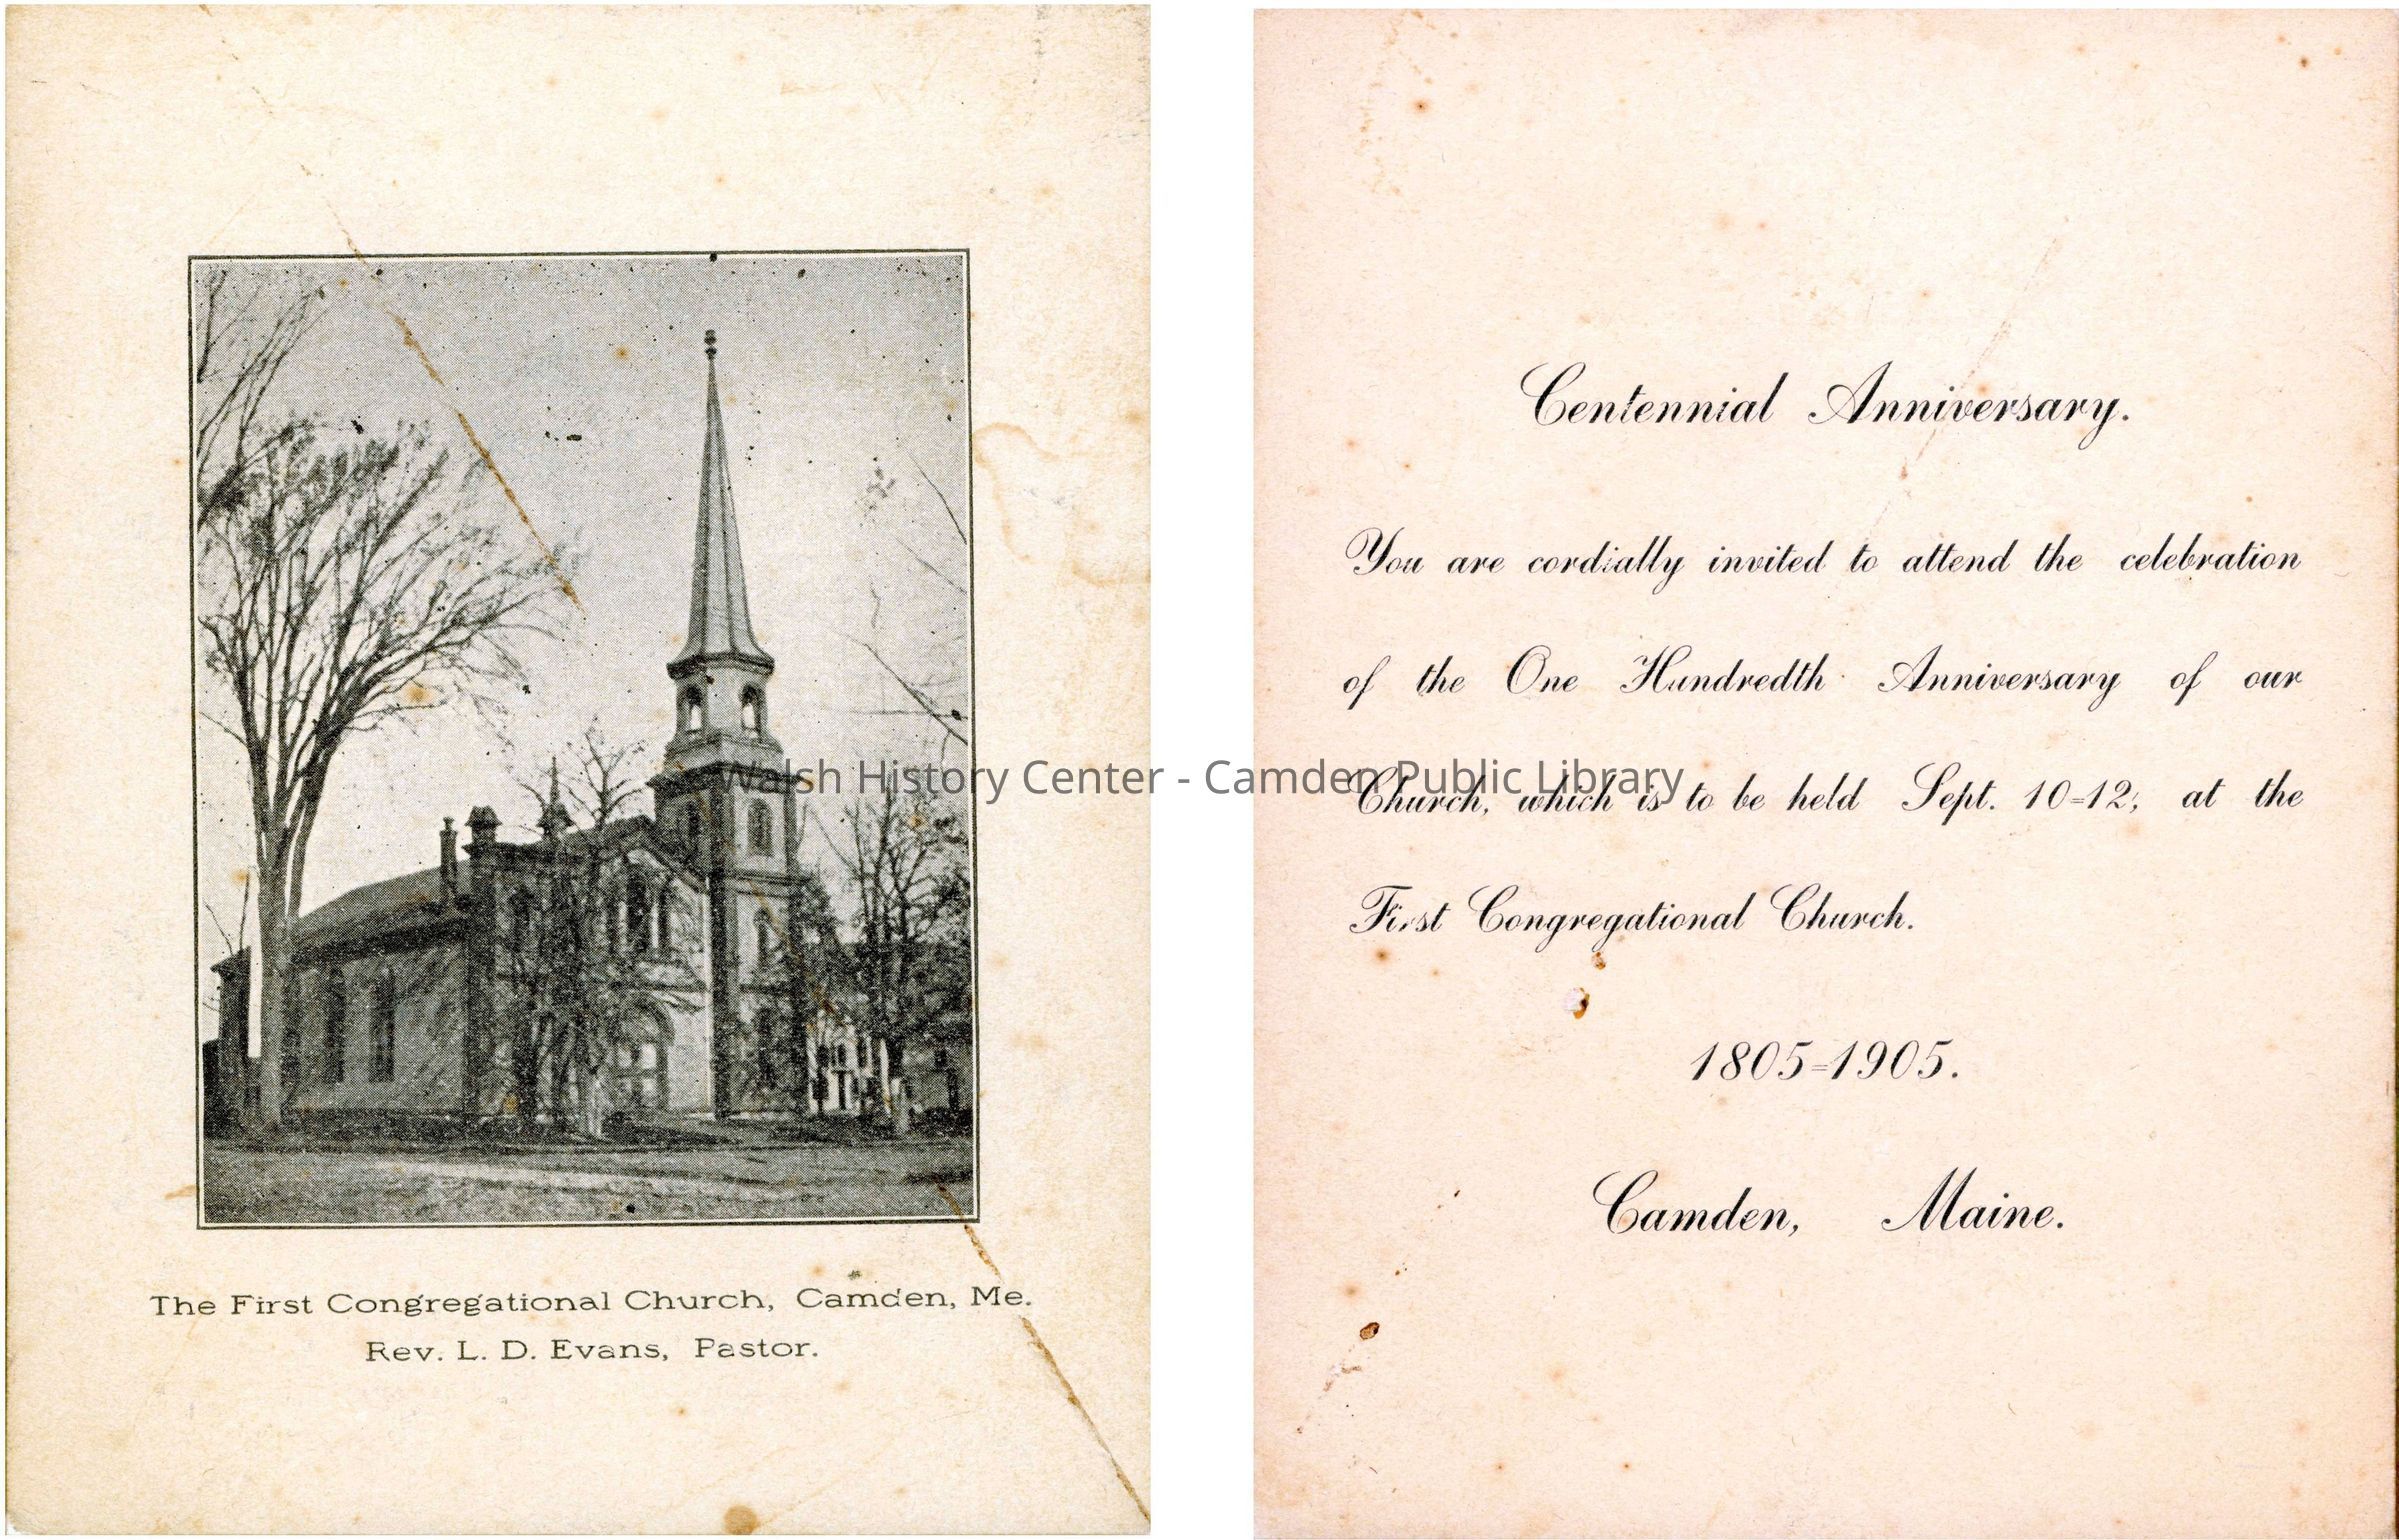 The First Congregational Church, Camden, Me.
Rev. L. D. Evans, Pastor.
Walsh History Center - Camden Public Library
Centennial Anniversary.
You are cordially invited to attend the celebration
of the One Hundredth Anniversary of our
Church, which is to be held Sept. 10-12, at the
First Congregational Church.
1805-1905.
Camden, Maine.